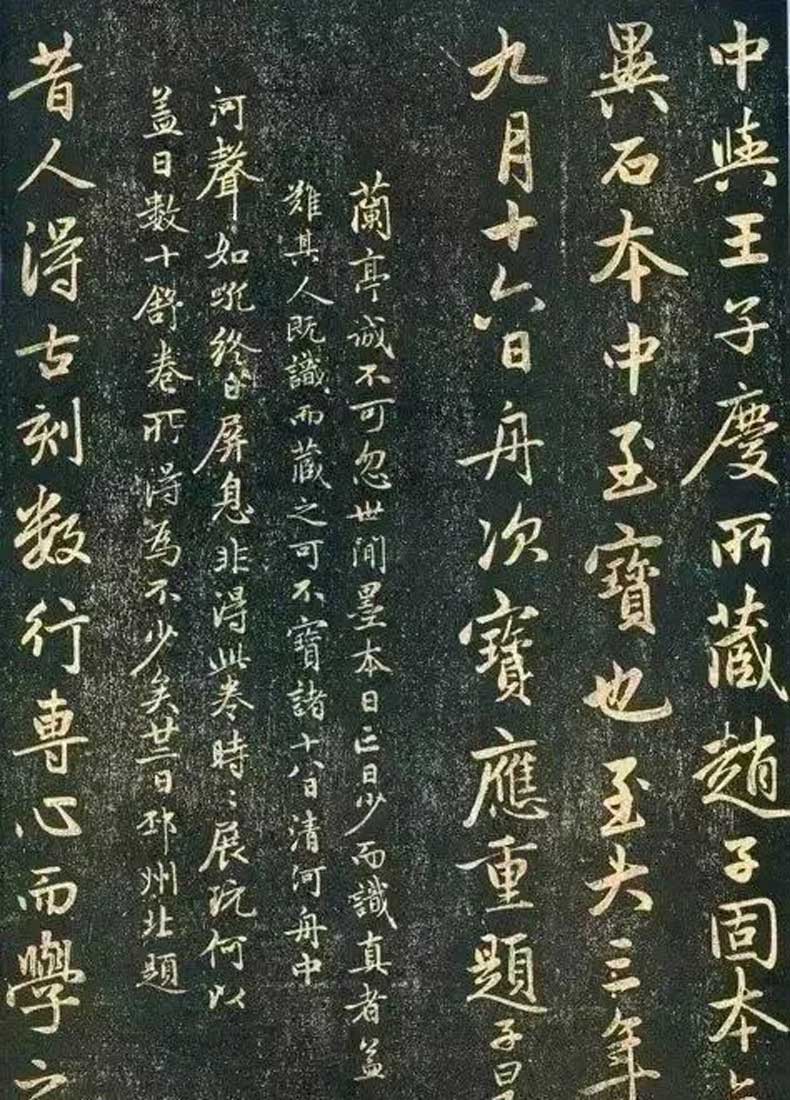 中與王子慶所藏趙子固本
異石本中至寶也至大三年
九月十六日舟次寶應重題子昂
蘭亭誠不可忽世間墨本日亡日少而識真者益
難其人既識而藏之可不寶諸十八日清河舟中
河聲如吼終日屏息非得此卷時〻展玩何以
盖日數十舒卷所得為不少矣廿二日邳州北題
昔人得古刻數行專心而學之